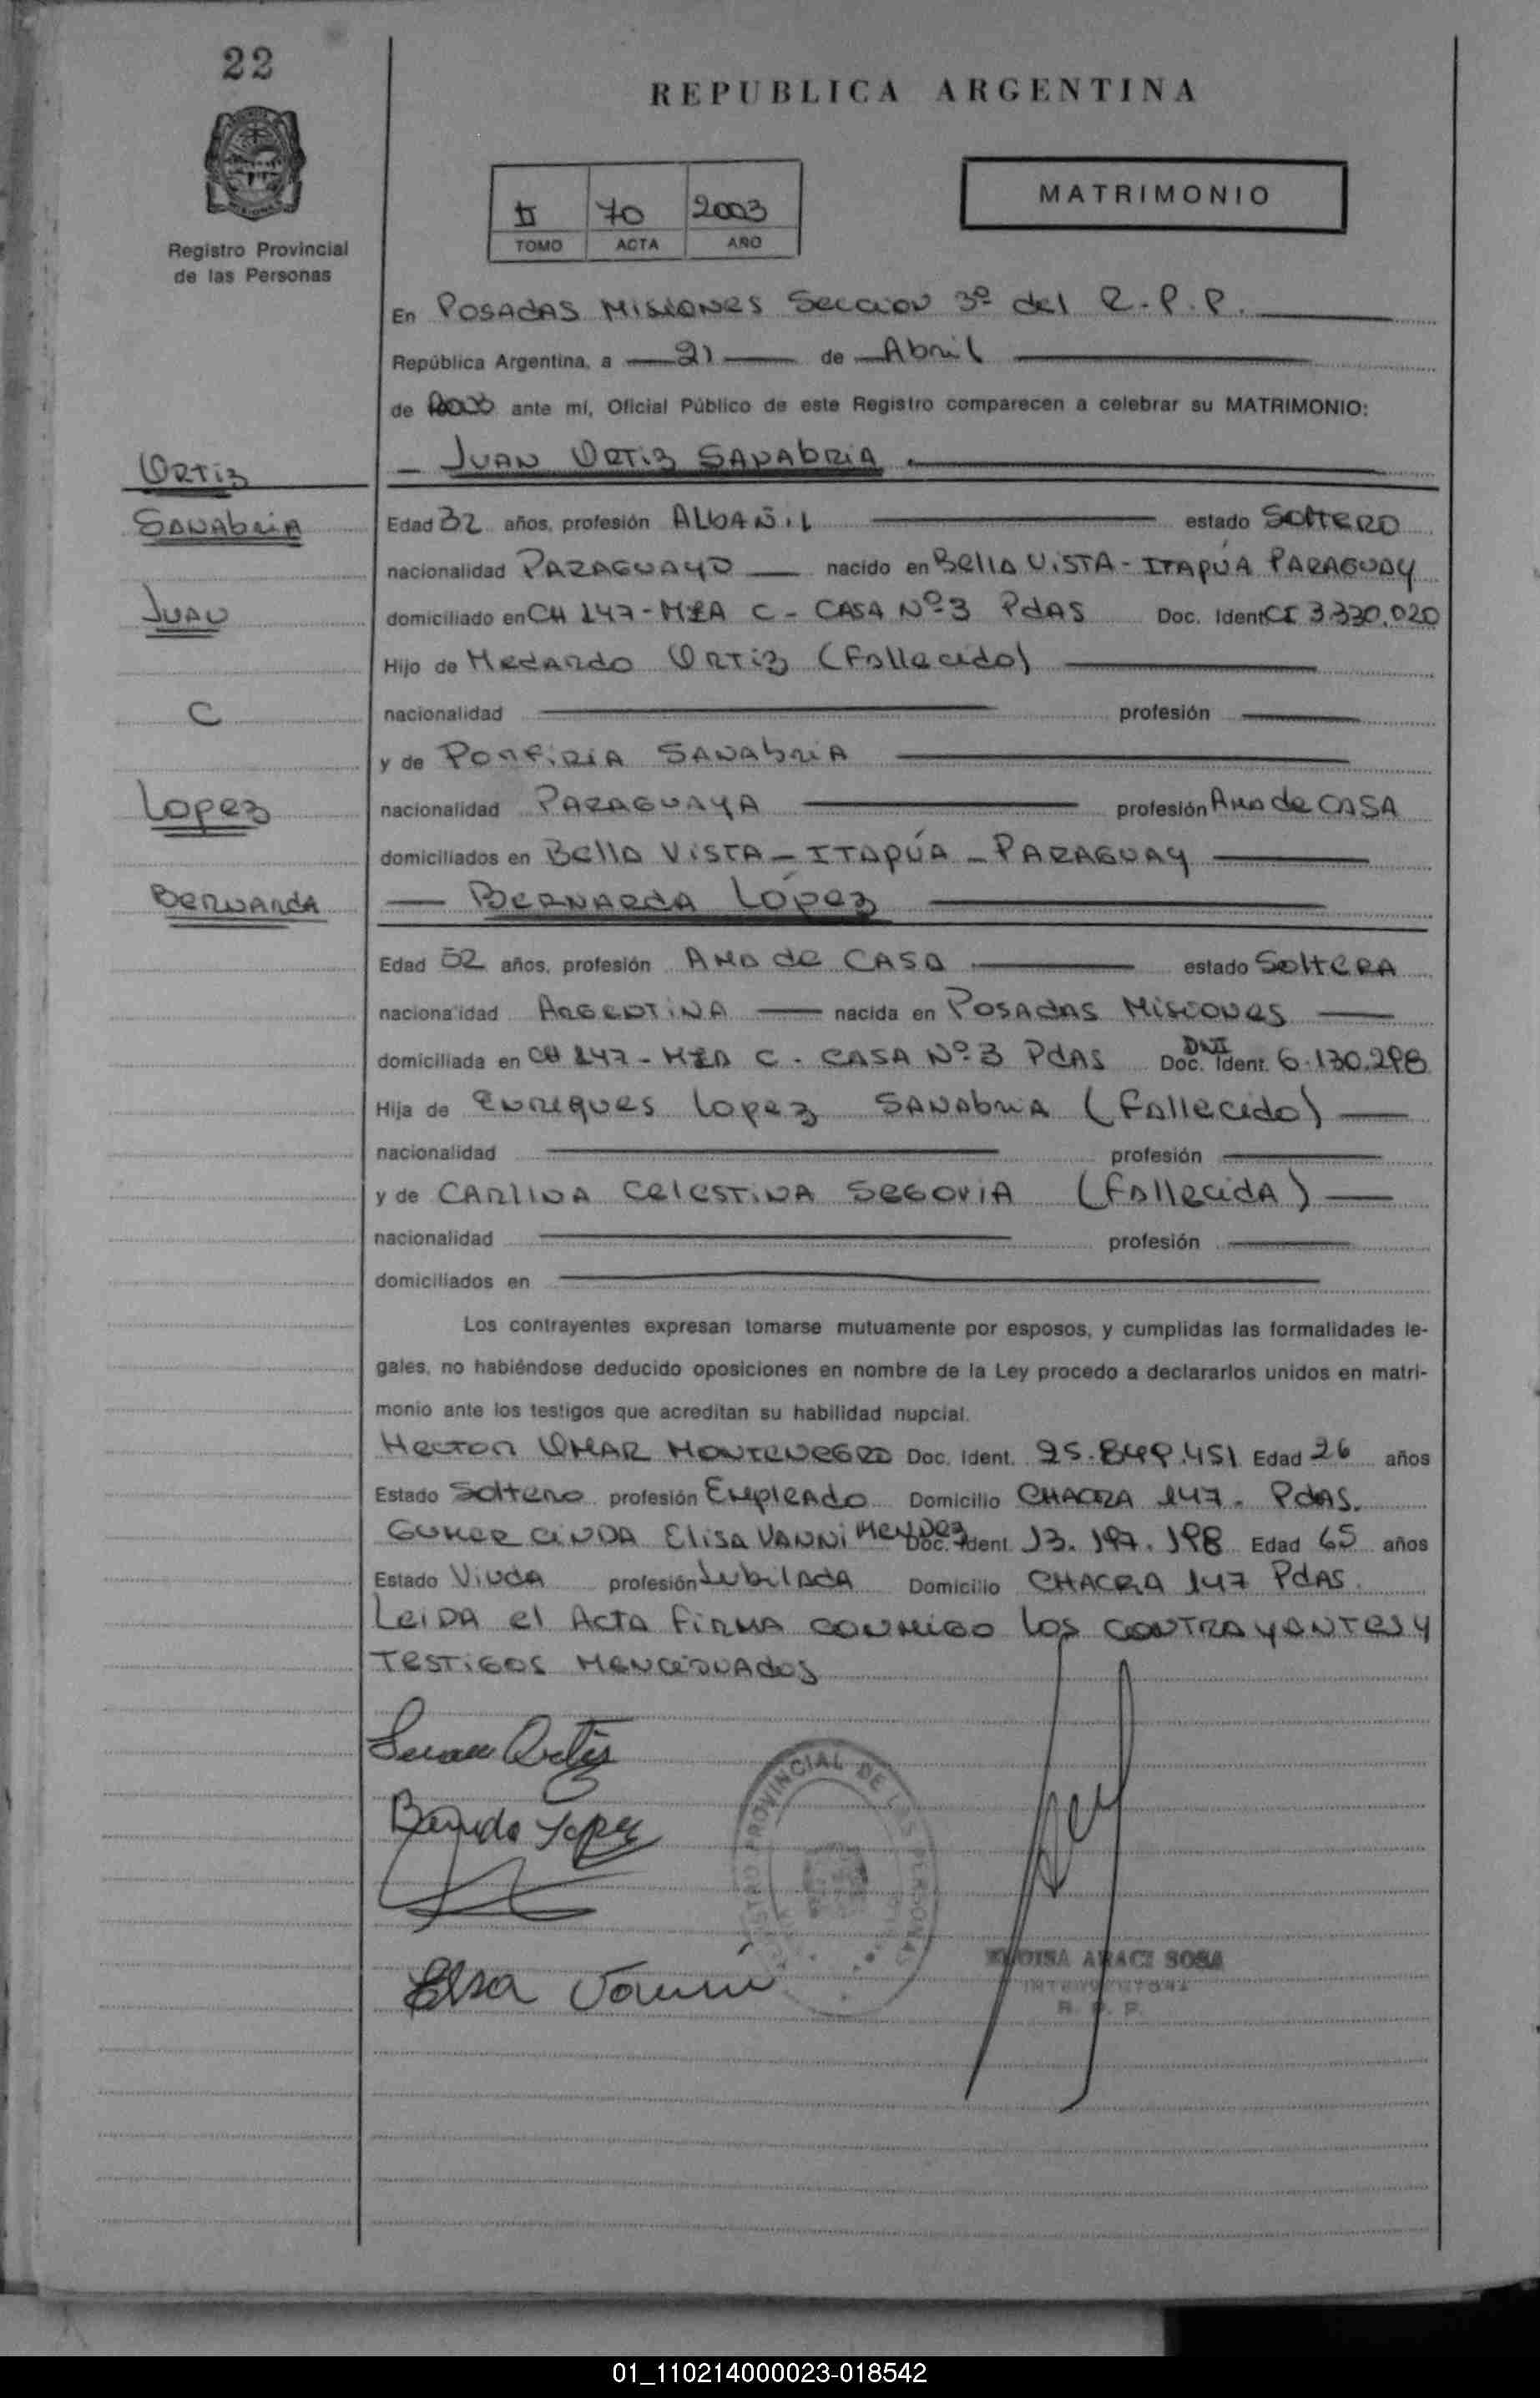 22
REPUBLICA ARGENTINA
Registro Provincial
de las Personas
II 70 2003
TOMO ACTA AÑO
MATRIMONIO
En POSADAS MISIONES SECCION 3º del R.P.P.
República Argentina, a 21 de Abril
de 2003 ante mí, Oficial Público de este Registro comparecen a celebrar su MATRIMONIO:
ORTIZ
JUAN ORTIZ SANABRIA
SANABRIA
Edad 32 años, profesión ALBAÑIL estado SOLTERO
nacionalidad PARAGUAYO nacido en BELLA VISTA - ITAPÚA PARAGUAY
JUAN
domiciliado en CH 147 - MZA C - CASA Nº 3 PdAS Doc. Ident CI 3.330.020
Hijo de MEDARDO ORTIZ (FALLECIDO)
C
nacionalidad profesión
y de PORFIRIA SANABRIA
LOPEZ
nacionalidad PARAGUAYA profesión AMA de CASA
domiciliados en BELLA VISTA - ITAPÚA - PARAGUAY
BERNARDA
BERNARDA LÓPEZ
Edad 52 años, profesión AMA de CASA estado SOLTERA
nacionalidad ARGENTINA nacida en POSADAS MISIONES
domiciliada en CH 147 - MZA C - CASA Nº 3 PdAS Doc. Ident. DNI 6.130.298
Hija de ENRIQUES LOPEZ SANABRIA (FALLECIDO)
nacionalidad profesión
y de CARLINA CELESTINA SEGOVIA (FALLECIDA)
nacionalidad profesión
domiciliados en
Los contrayentes expresan tomarse mutuamente por esposos, y cumplidas las formalidades le-
gales, no habiéndose deducido oposiciones en nombre de la Ley procedo a declararlos unidos en matri-
monio ante los testigos que acreditan su habilidad nupcial.
HECTOR OMAR MONTENEGRO Doc. Ident. 25.849.451 Edad 26 años
Estado SOLTERO profesión EMPLEADO Domicilio CHACRA 147. PdAS.
GUMERCINDA ELISA VANNI MENDEZ Doc. Ident. 13.197.198 Edad 65 años
Estado VIUDA profesión JUBILADA Domicilio CHACRA 147 PdAS.
LEIDA el ACTA FIRMA CONMIGO LOS CONTRAYANTES Y
TESTIGOS MENCIONADOS
Juan Ortiz
Bernarda Lopez
Elsa Vanni
REGISTRO PROVINCIAL DE LAS PERSONAS
ELOISA ARACI SOSA
INTERVENTORA
R. P. P.
01_110214000023-018542